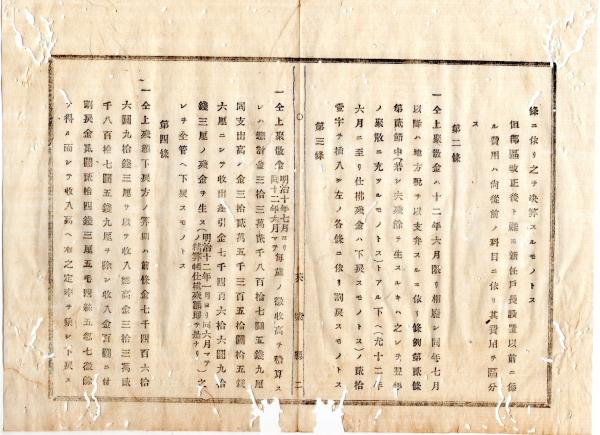 條ニ依リ之ヲ決算スルモノトス
但郡區改正後ト雖モ新任戸長設置以前ニ係
ル費用ハ尚從前ノ科目ニ依リ其費用ヲ區分
ス
第二條
一仝上聚散金ハ十二年六月限リ相廢シ同年七月
以降ハ地方稅ヲ以支弁スルニ依リ條例第貳條
第貳節中(若シ夫殘餘ヲ生スルキハ之レヲ翌
ノ聚散ニ充ツルモノトス)トアル下ヘ(尤十二年
六月ニ至リ仕拂殘金ハ下戻スモノトス)ノ貳拾
壹字ヲ拾入シ左ノ各條ニ依リ割戻スモノトス
第三條
茨城縣
二
一仝上聚散金明治十年七月ヨリ同十二年六月マテ毎葉ノ徵收高ヲ積算ス
レハ總計金三拾三萬貳千八百拾七圓五錢九厘
同支出高ノ金三拾貳萬五千三百五拾圓拾五錢
六厘ニシテ收出差引金七千四百六拾六圓九拾
錢三厘ノ殘金ヲ生ス(明治十二年一月ヨリ同六月マテノ精算帳仕拂殘額即チ是ナリ)之
レヲ全管ヘ下戻スモノトス
第四條
一仝上殘額下戻方ノ算則ハ前條金七千四百六拾
六圓九拾錢三厘ヲ以テ收入總高金三拾三萬貳
千八百拾七圓五錢九厘ヲ除シ收入金百圓ニ付
割戻金貳圓貳拾四錢三厘五毛四絲五忽七微餘
ヲ得ル而シテ收入高ヘ右之定率ヲ乘シ下戻ス